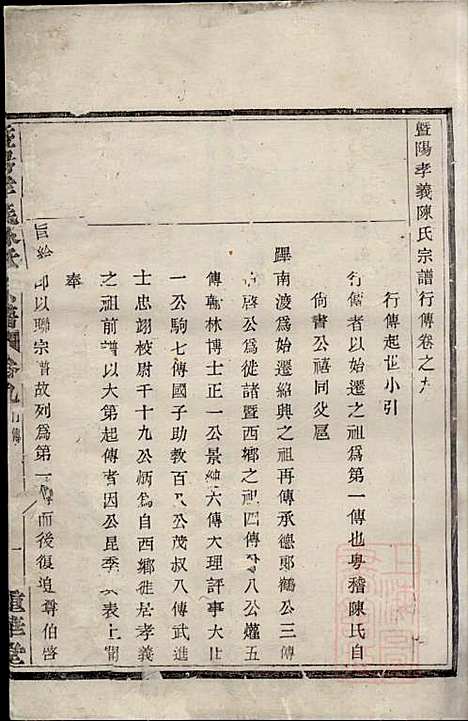 暨陽孝義陳氏宗譜行傳卷之九
行傳起世小引
行傳者以始遷之祖爲第一傳也粵稽陳氏自
尚書公禧同父扈
蹕南渡爲始遷紹興之祖再傳承德郎鶴公三傳
啓公爲徙諸暨西鄉之祖四傳 八公爟五
傳翰林博士正一公景純六傳大理評事大
一公駒七傳國子助教百 公茂叔八傳武進
士忠翊校尉千十九公炳爲自西鄉徙居孝義
之祖前譜以大第起傳者因公昆季 表上聞
奉
旨給 以聯宗譜故列爲第一傳而後復追尊伯啓
卷九
行傳
一
聿堂